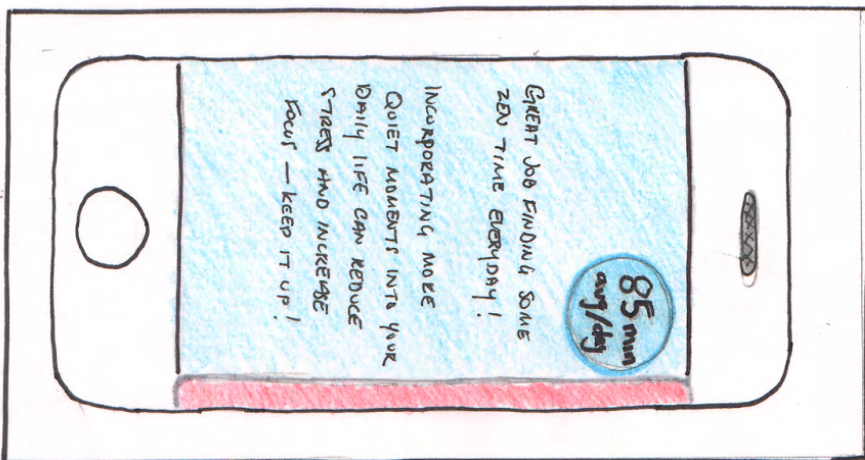 85 min
avg/day
GREAT JOB FINDING SOME
ZEN TIME EVERYDAY!
INCORPORATING MORE
QUIET MOMENTS INTO YOUR
DAILY LIFE CAN REDUCE
STRESS AND INCREASE
FOCUS – KEEP IT UP!